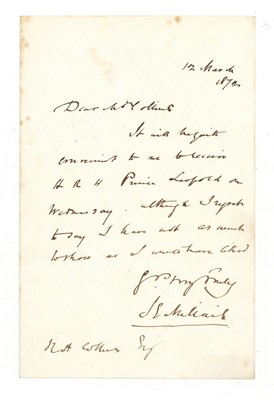 12 March
187
Dear Mr Collins
It will be quite
convenient to me to receive
H R H Prince Leopold on
Wednesday. although I regret
to say I have not as much
to show as I would have liked
Yrs very truly
J E Millais
R H Collins Esq